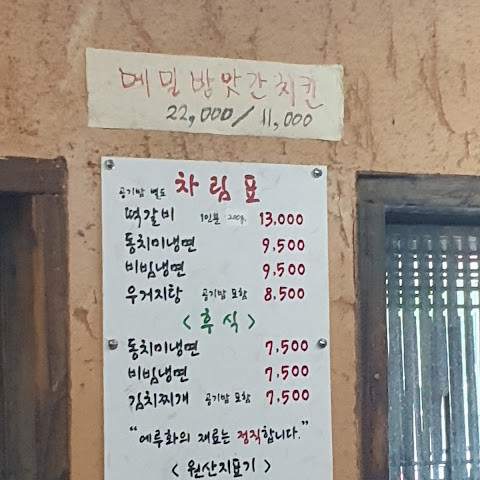 메밀방앗간치킨
22,000/11,000
공기밥 별도 차림표
떡갈비 1인분 200g. 13,000
동치미냉면 9,500
비빔냉면 9,500
우거지탕 공기밥 포함 8,500
<후식>
동치미냉면 7,500
비빔냉면 7,500
김치찌개 공기밥 포함 7,500
"예루화의 재료는 정직합니다."
<원산지표기>